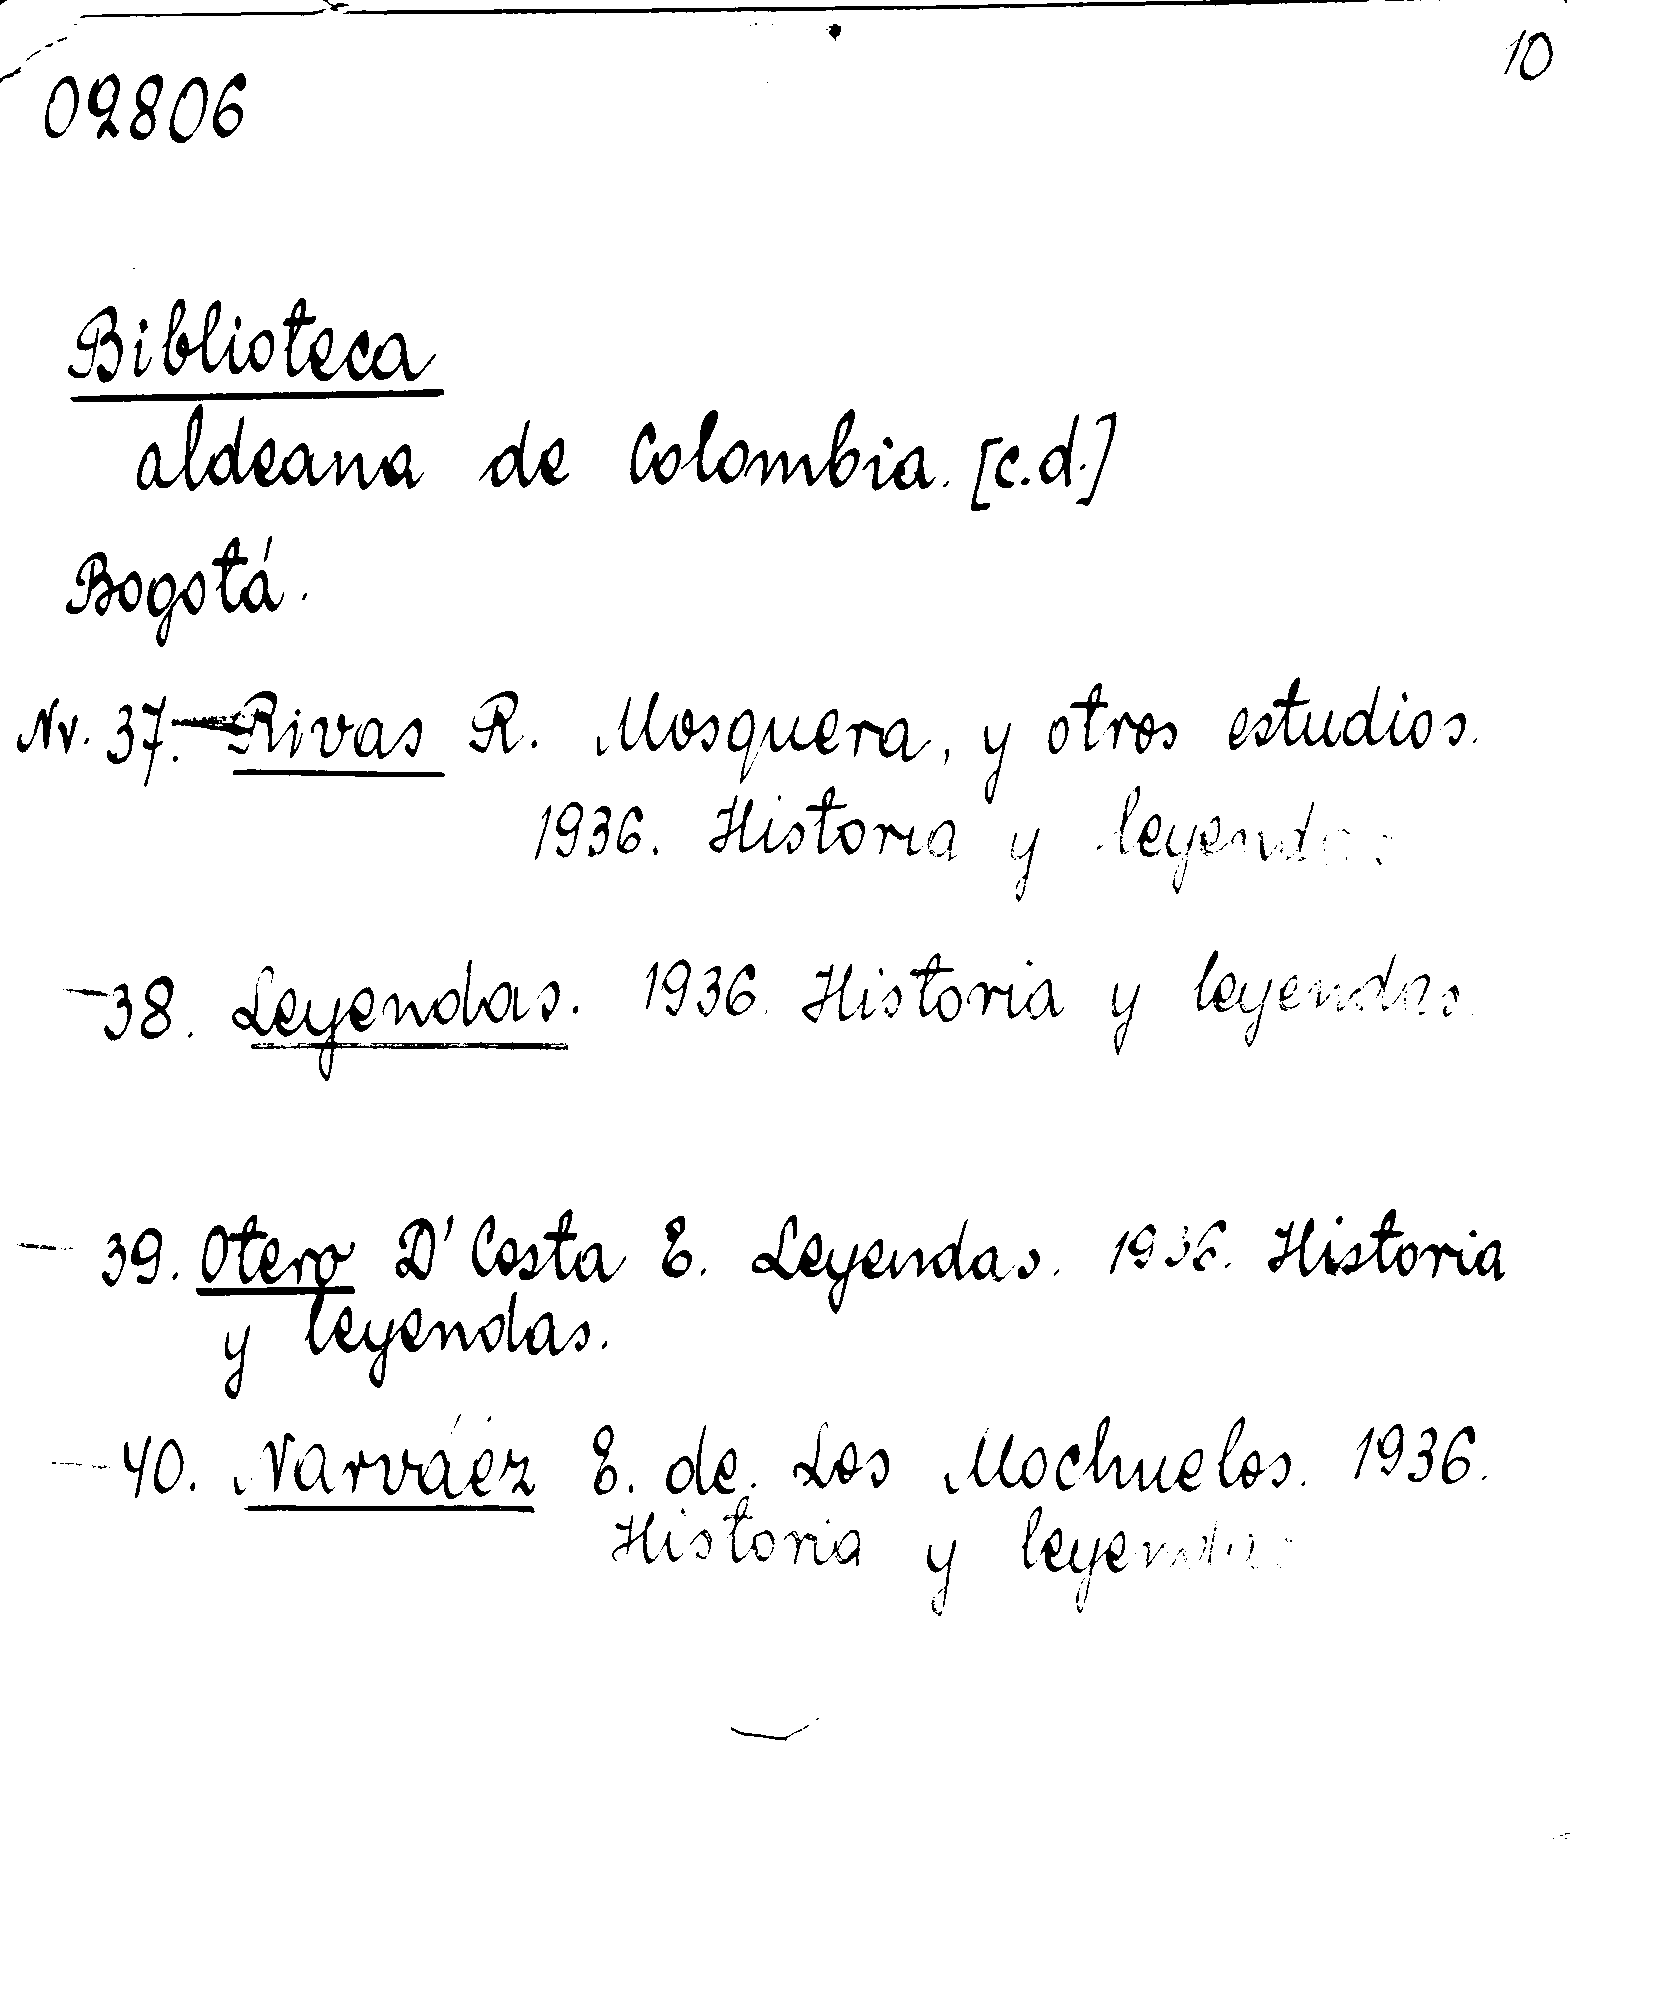 10
02806
Biblioteca
aldeana de Colombia. [c.d.]
Bogotá.
Nr. 37.— Rivas R. Mosquera, y otros estudios.
1936. Historia y leyendas
— 38. Leyendas. 1936. Historia y leyendas.
— 39. Otero D'Costa E. Leyendas. 1936. Historia
y leyendas.
— 40. Narváez E. de. Los Mochuelos. 1936.
Historia y leyendas